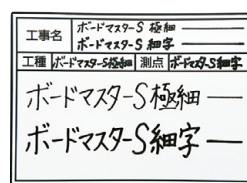 工事名 ボードマスターS 極細
ボードマスターS 細字
工種 ボードマスターS極細 測点 ボードマスターS細字
ボードマスターS極細
ボードマスターS細字